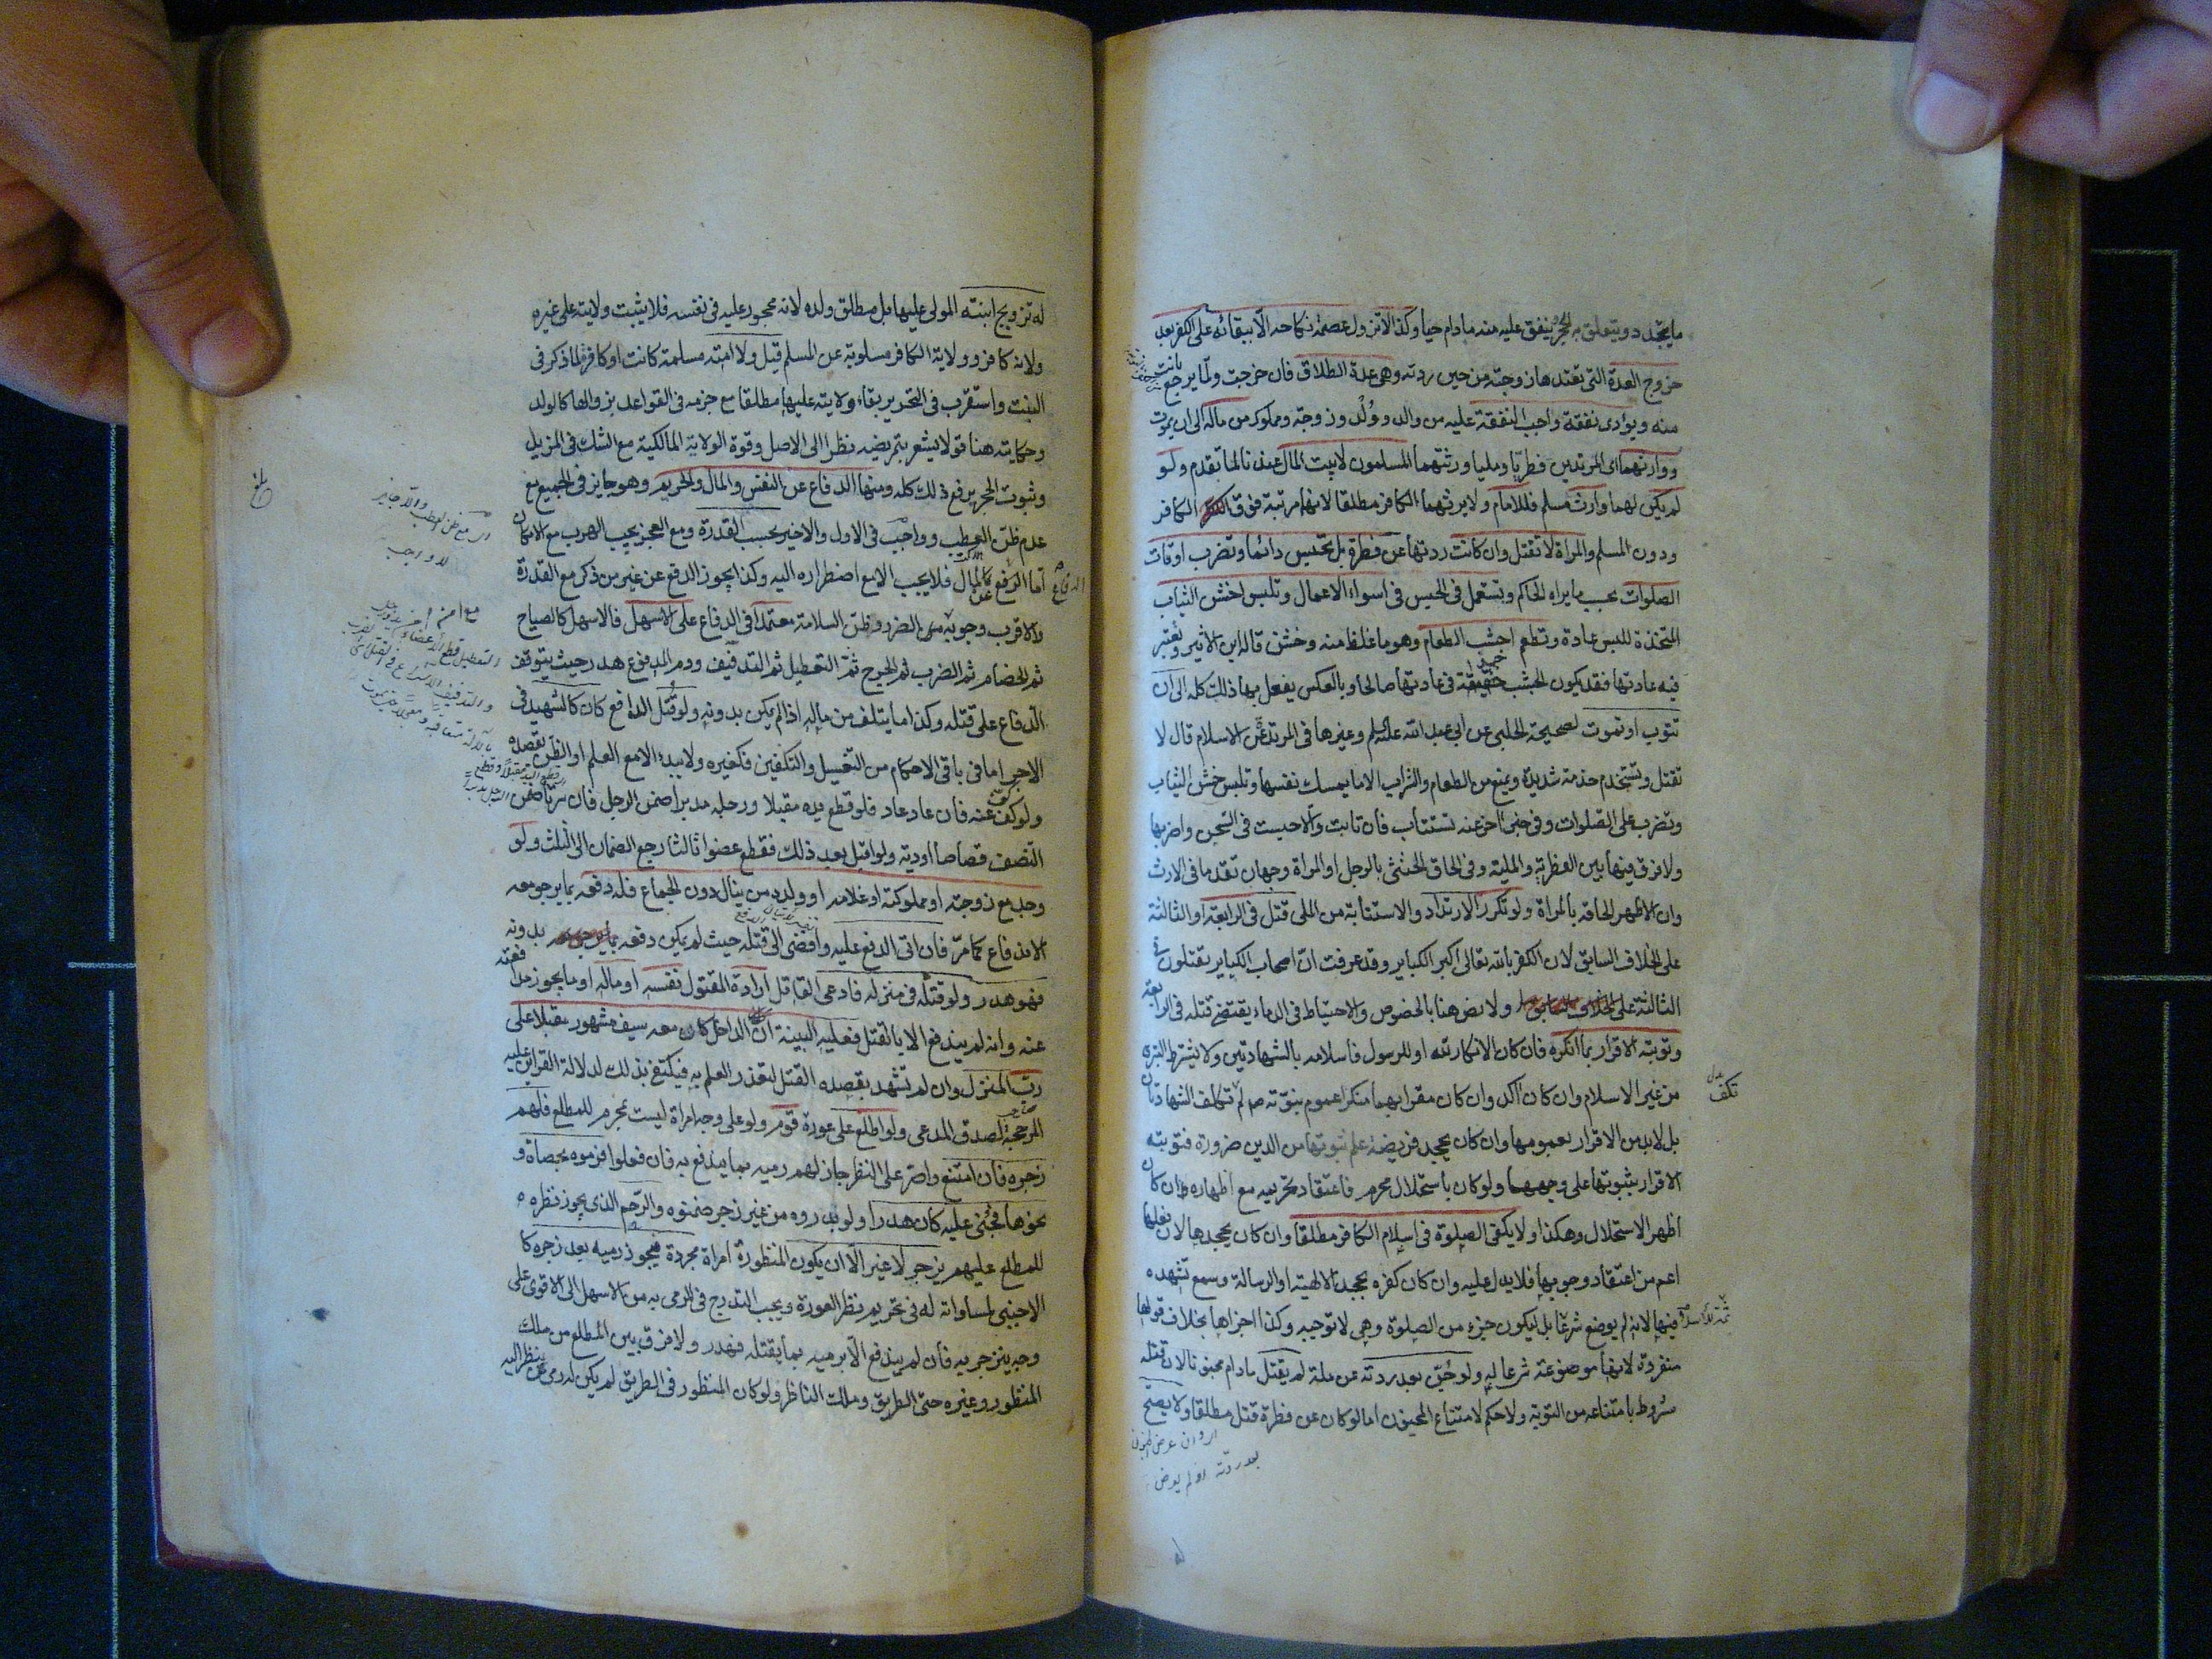 ما يتجدد ويتعلق به الحجر وينفق عليه منه مادام حيا وكذا لا تزول عصمة نكاحه الا ببقائه على الكفر بعد
خروج العدة التى تعتدها زوجته من حين ردته وهى عدة الطلاق فان خرجت ولما يرجع بانت
منه ويؤدى نفقة واجب النفقة عليه من والد وولد وزوجة ومملوك من ماله الى ان يموت
ووارثهما اى المرتدين فطريا ومليا ورثتهما المسلمون لا بيت المال عندنا لما تقدم ولو
لم يكن لهما وارث مسلم فللامام ولا يرثهما الكافر مطلقا لانهما مرتبة فوق الكافر
ودون المسلم والمراة لا تقتل وان كانت ردتها عن فطرة بل تحبس دائما وتضرب اوقات
الصلوات بحسب ما يراه الحاكم وتستعمل فى الحبس فى اسواء الاعمال وتلبس اخشن الثياب
المتخذة للبس عادة وتطعم اجشب الطعام وهو ما غلظ منه وخشن قاله ابن الاثير ويعتبر
فيه عادتها فقد يكون الجشب حقيقة فى عادتها صالحا وبالعكس يفعل بها ذلك كله الى ان
تتوب او تموت لصحيحة الحلبى عن ابى عبد الله عليه السلم وغيرها فى المرتدة عن الاسلام قال لا
تقتل وتستخدم خدمة شديدة وتمنع من الطعام والشراب الا ما يمسك نفسها وتلبس خشن الثياب
وتضرب على الصلوات وفى خبر اخر عنه تستتاب فان تابت والا حبست فى السجن واضر بها
ولا فرق فيها بين الفطرية والملية وفى الحاق الخنثى بالرجل او المراة وجهان تقدما فى الارث
وان الاظهر الحاقه بالمراة ولو تكرر الارتداد والاستتابة من الملى قتل فى الرابعة او الثالثة
على الخلاف السابق لان الكفر بالله تعالى اكبر الكباير وقد عرفت ان اصحاب الكباير يقتلون فى
الثالثة ولا نص هنا بالخصوص والاحتياط فى الدماء يقتضى قتله فى الرابعة
وتوبته الاقرار بما انكره فان كان الانكار لله او للرسول فاسلامه بالشهادتين ولا يشترط التبرى
من غير الاسلام وان كان اكد وان كان مقرا بهما منكرا عموم نبوته ص لم تكف الشهادتان
بل لابد من الاقرار بعمومها وان كان بجحد فريضة علم ثبوتها من الدين ضرورة فتوبته
الاقرار بثبوتها على وجهها ولو كان باستحلال محرم فاعتقاد تحريمه مع اظهاره ان كان
اظهر الاستحلال وهكذا ولا يكفى الصلوة فى اسلام الكافر مطلقا وان كان يجحدها لان فعلها
اعم من اعتقاد وجوبها فلا يدل عليه وان كان كفره بجحد الالهية او الرسالة وسمع تشهده
فيها لانه لم يوضع شرعا ثمة للاسلام بل ليكون جزء من الصلوة وهى لا توجبه وكذا اجزاها بخلاف قولها
منفردة لانها موضوعة شرعا له ولو جن بعد ردته عن ملة لم يقتل مادام مجنونا لان قتله
مشروط بامتناعه من التوبة ولا حكم لامتناع المجنون اما لو كان عن فطرة قتل مطلقا ولا يصح
بعد ردته او لم يعرض
له تزويج ابنته المولى عليها بل مطلق ولده لانه محجور عليه فى نفسه فلا يثبت ولايته على غيره
ولانه كافر وولاية الكافر مسلوبة عن المسلم قيل ولا امته مسلمة كانت او كافرة لما ذكر فى
البنت واستقرب فى التحرير بقاء ولايته عليها مطلقا مع جزمه فى القواعد بزوالها كالولد
وحكايته هنا قولا يشعر بتمريضه نظرا الى الاصل وقوة الولاية المالكية مع الشك فى المزيل
وثبوت الحجر يرفع ذلك كله ومنها الدفاع عن النفس والمال والحريم وهو جايز فى الجميع مع
عدم ظن العطب وواجب فى الاول والاخير بحسب القدرة ومع العجز يجب الهرب مع الامكان
اما الدفاع عن المال فلا يجب الا مع اضطراره اليه وكذا يجوز الدفع عن غير من ذكر مع القدرة
والاقرب وجوبه مع امن الضرر وظن السلامة معتمدا فى الدفاع على الاسهل فالاسهل كالصياح
ثم الخصام ثم الضرب ثم الجرح ثم التعطيل ثم التدفيف ودم المدفوع هدر حيث يتوقف
الدفاع على قتله وكذا ما يتلف من ماله اذا لم يكن بدونه ولو قتل الدافع كان كالشهيد فى
الاجر اما فى باقى الاحكام من التغسيل والتكفين فكغيره ولا يبدء الا مع العلم او الظن بقصده
ولو كف كف عنه فان عاد عاد فلو قطع يده مقبلا ورجله مدبرا ضمن الرجل فان سرتا ضمن
النصف قصاصا او دية ولو اقبل بعد ذلك فقطع عضوا ثالثا رجع الضمان الى الثلث ولو
وجد مع زوجته او مملوكته او غلامه او ولده من ينال دون الجماع فله دفعه بما يرجو معه
الاندفاع كما مر فان اتى الدفع عليه وافضى الى قتله حيث لم يمكن دفعه بدونه
فهو هدر ولو قتله فى منزله فادعى القاتل ارادة المقتول نفسه او ماله او ما يجوز مدافعته
عنه وانه لم يندفع الا بالقتل فعليه البينة ان الداخل كان معه سيف مشهور مقبلا على
رب المنزل وان لم تشهد بقصده القتل لتعذر العلم به فيكتفى بذلك لدلالة القراين عليه
المرجحة لصدق المدعى ولو اطلع على عورة قوم ولو على وجه امراة ليست بمحرم للمطلع فلهم
زجره فان امتنع واصر على النظر جاز لهم رميه بما يندفع به فان فعلوا فرموه بحصاة و
نحوها فجنى عليه كان هدرا ولو بدروه من غير زجر ضمنوه والرحم الذى يجوز نظره
للمطلع عليهم يزجر لا غير الا ان يكون المنظورة امراة مجردة فيجوز رميه بعد زجره كا
الاجنبى لمساواته له فى تحريم نظر العورة ويجب التدرج فى الرمى به من الاسهل الى الاقوى على
وجه ينزجر به فان لم يندفع الا برميه بما يقتله فهدر ولا فرق بين المطلع من ملك
المنظور وغيره حتى الطريق وملك الناظر ولو كان المنظور فى الطريق لم يكن له رمى من ينظر اليه